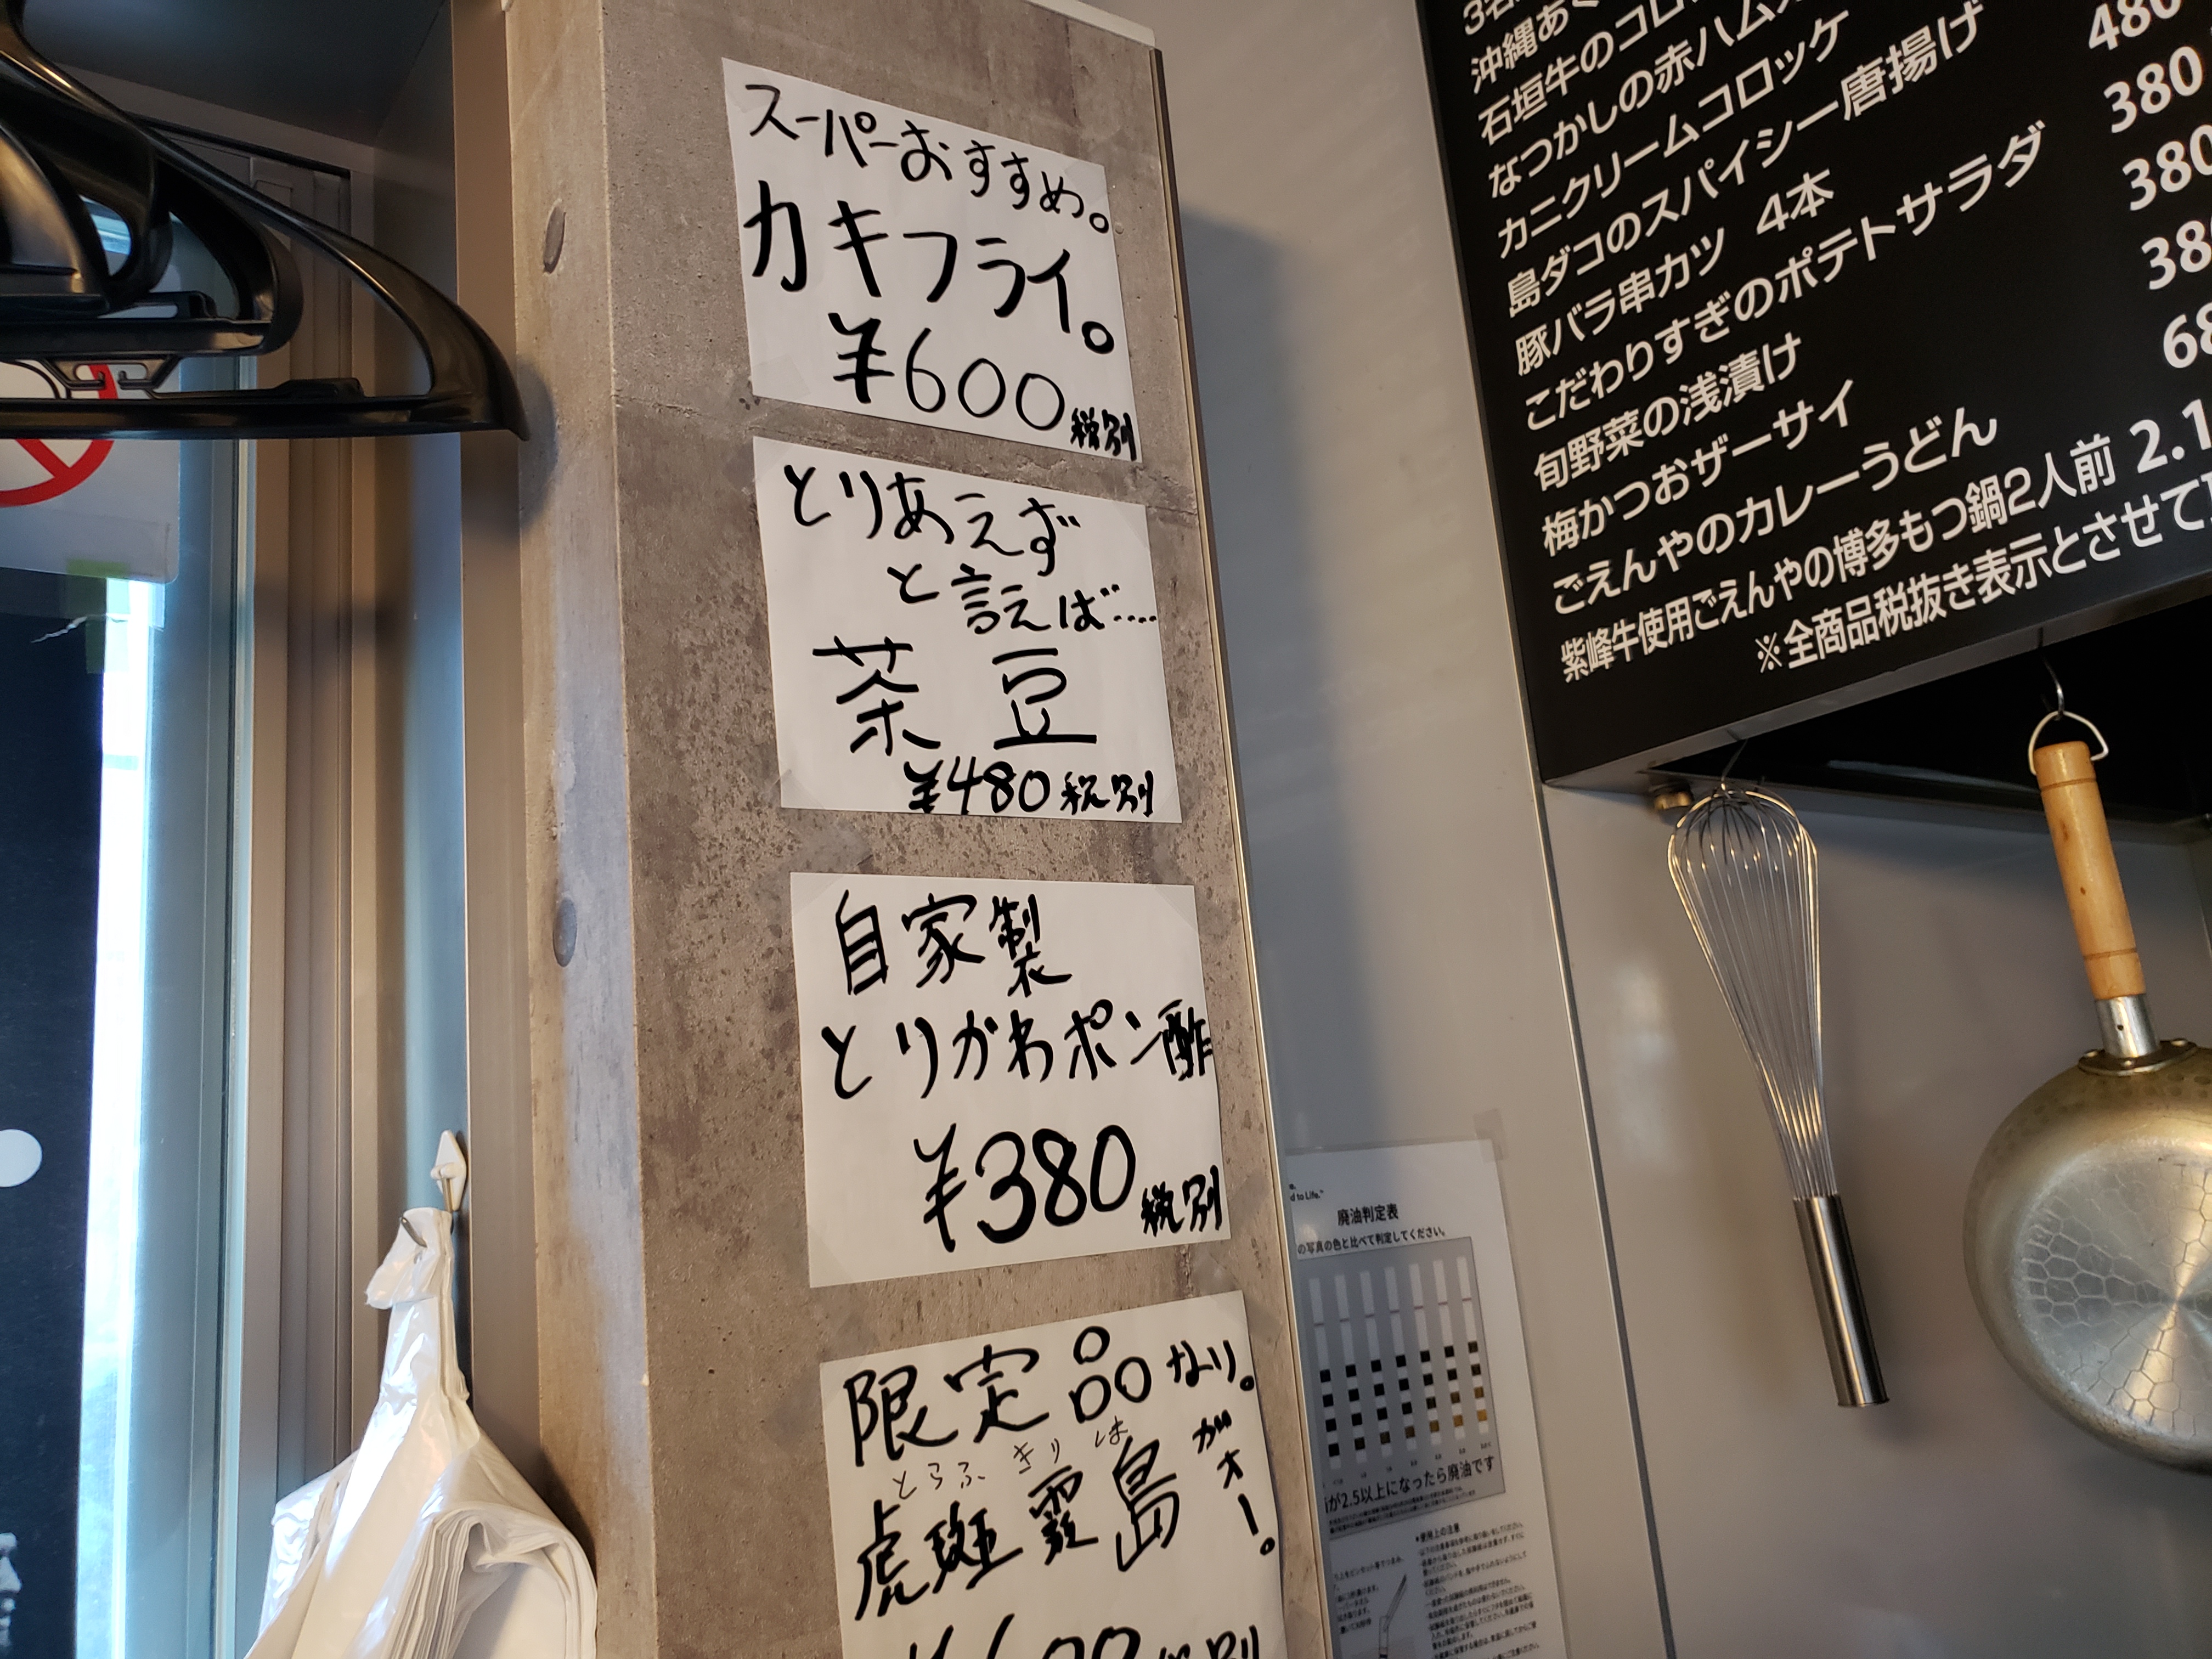 スーパーおすすめ。
カキフライ。
¥600税別
とりあえず
と言えば‥‥
茶豆
¥480税別
自家製
とりかわポン酢
¥380税別
限定品なり。
とらふ きり しま
虎斑霧島
ガオー!。
沖縄あぐ
石垣牛のコロ
なつかしの赤ハム
カニクリームコロッケ 480
島ダコのスパイシー唐揚げ 380
豚バラ串カツ 4本 380
こだわりすぎのポテトサラダ
旬野菜の浅漬け
梅かつおザーサイ
ごえんやのカレーうどん
紫峰牛使用ごえんやの博多もつ鍋2人前 2.1
※全商品税抜き表示とさせて
d to Life.
廃油判定表
の写真の色と比べて判定してください。
が2.5以上になったら廃油です
使用上の注意